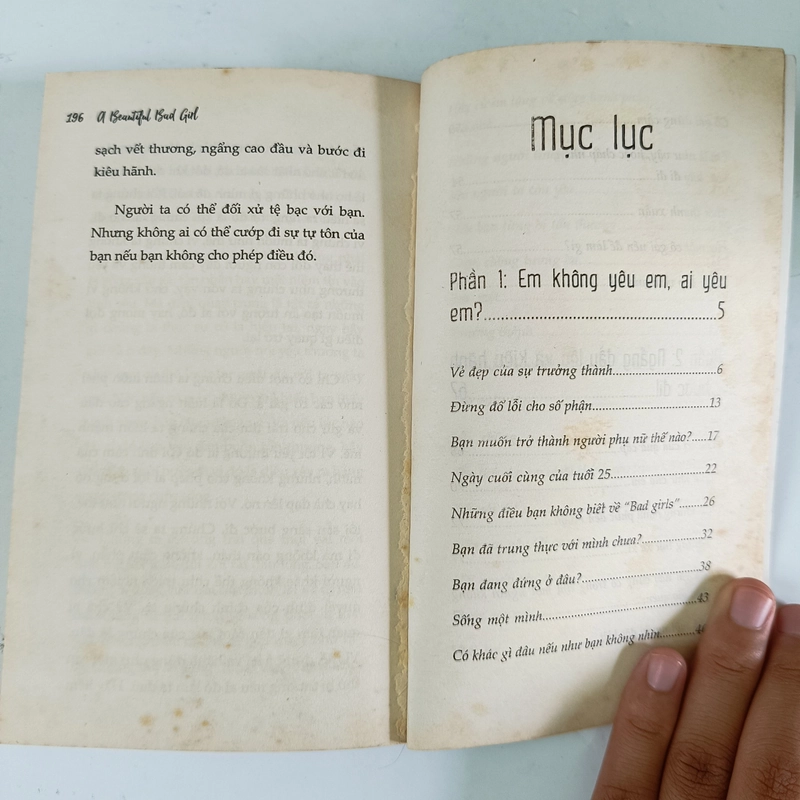 196 A Beautiful Bad Girl
sạch vết thương, ngẩng cao đầu và bước đi
kiêu hãnh.
Người ta có thể đối xử tệ bạc với bạn.
Nhưng không ai có thể cướp đi sự tự tôn của
bạn nếu bạn không cho phép điều đó.
Mục lục
Phần 1: Em không yêu em, ai yêu
em?..................................................5
Vẻ đẹp của sự trưởng thành......................6
Đừng đổ lỗi cho số phận.........................13
Bạn muốn trở thành người phụ nữ thế nào?....17
Ngày cuối cùng của tuổi 25...................22
Những điều bạn không biết về "Bad girls".......26
Bạn đã trung thực với mình chưa?............32
Bạn đang đứng ở đâu?.......................38
Sống một mình............................43
Có khác gì đâu nếu như bạn không nhìn..........